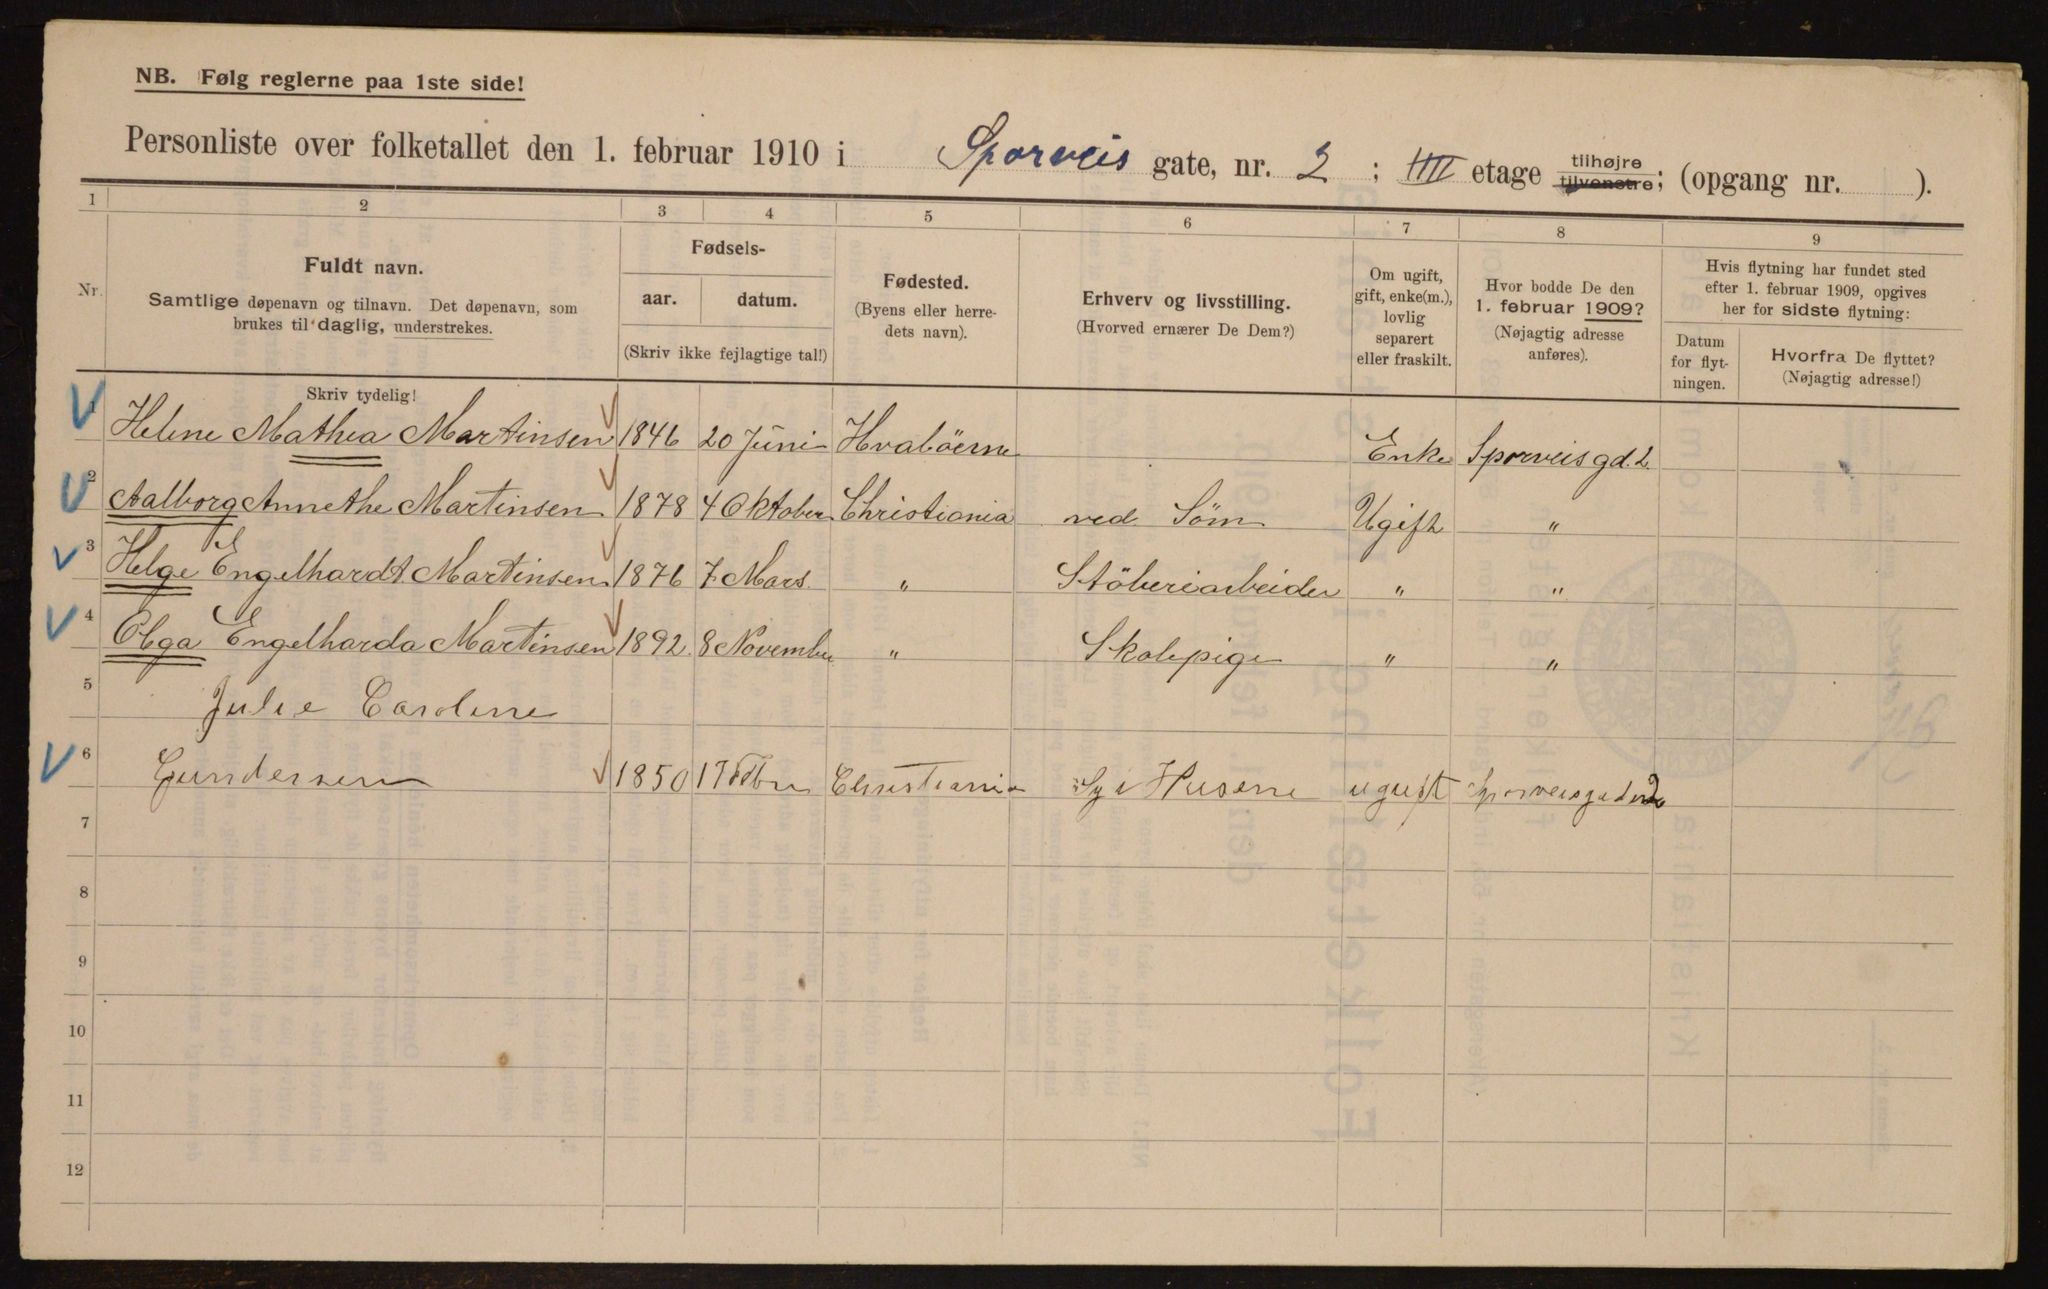 NB. Følg reglerne paa 1ste side!
Personliste over folketallet den 1. februar 1910 i Sporveis gate, nr. 2 ; IIII etage tilhøjre tilvenstre; (opgang nr. ).
1 2 3 4 5 6 7 8 9
Nr.
Fuldt navn.
Samtlige døpenavn og tilnavn. Det døpenavn, som
brukes til daglig, understrekes.
Skriv tydelig!
Fødsels-
aar. datum.
(Skriv ikke fejlagtige tal!)
Fødested.
(Byens eller herre-
dets navn).
Erhverv og livsstilling.
(Hvorved ernærer De Dem?)
Om ugift,
gift, enke(m.),
lovlig
separert
eller fraskilt.
Hvor bodde De den
1. februar 1909?
(Nøjagtig adresse
anføres).
Hvis flytning har fundet sted
efter 1. februar 1909, opgives
her for sidste flytning:
Datum
for flyt-
ningen.
Hvorfra De flyttet?
(Nøjagtig adresse!)
1 Helene Mathea Martinsen 1846 20 Juni Hvaløerne Enke Sporveisgd. 2
2 Aalborg Annethe Martinsen 1878 4 Oktober Christiania ved Søm Ugift "
3 Helge Engelhardt Martinsen 1876 7 Mars. " Stöberiarbeider " "
4 Olga Engelharda Martinsen 1892 8 November " Skolepige " "
5 Julie Caroline
6 Gundersen 1850 Christiania Sy i Husene ugift
7
8
9
10
11
12